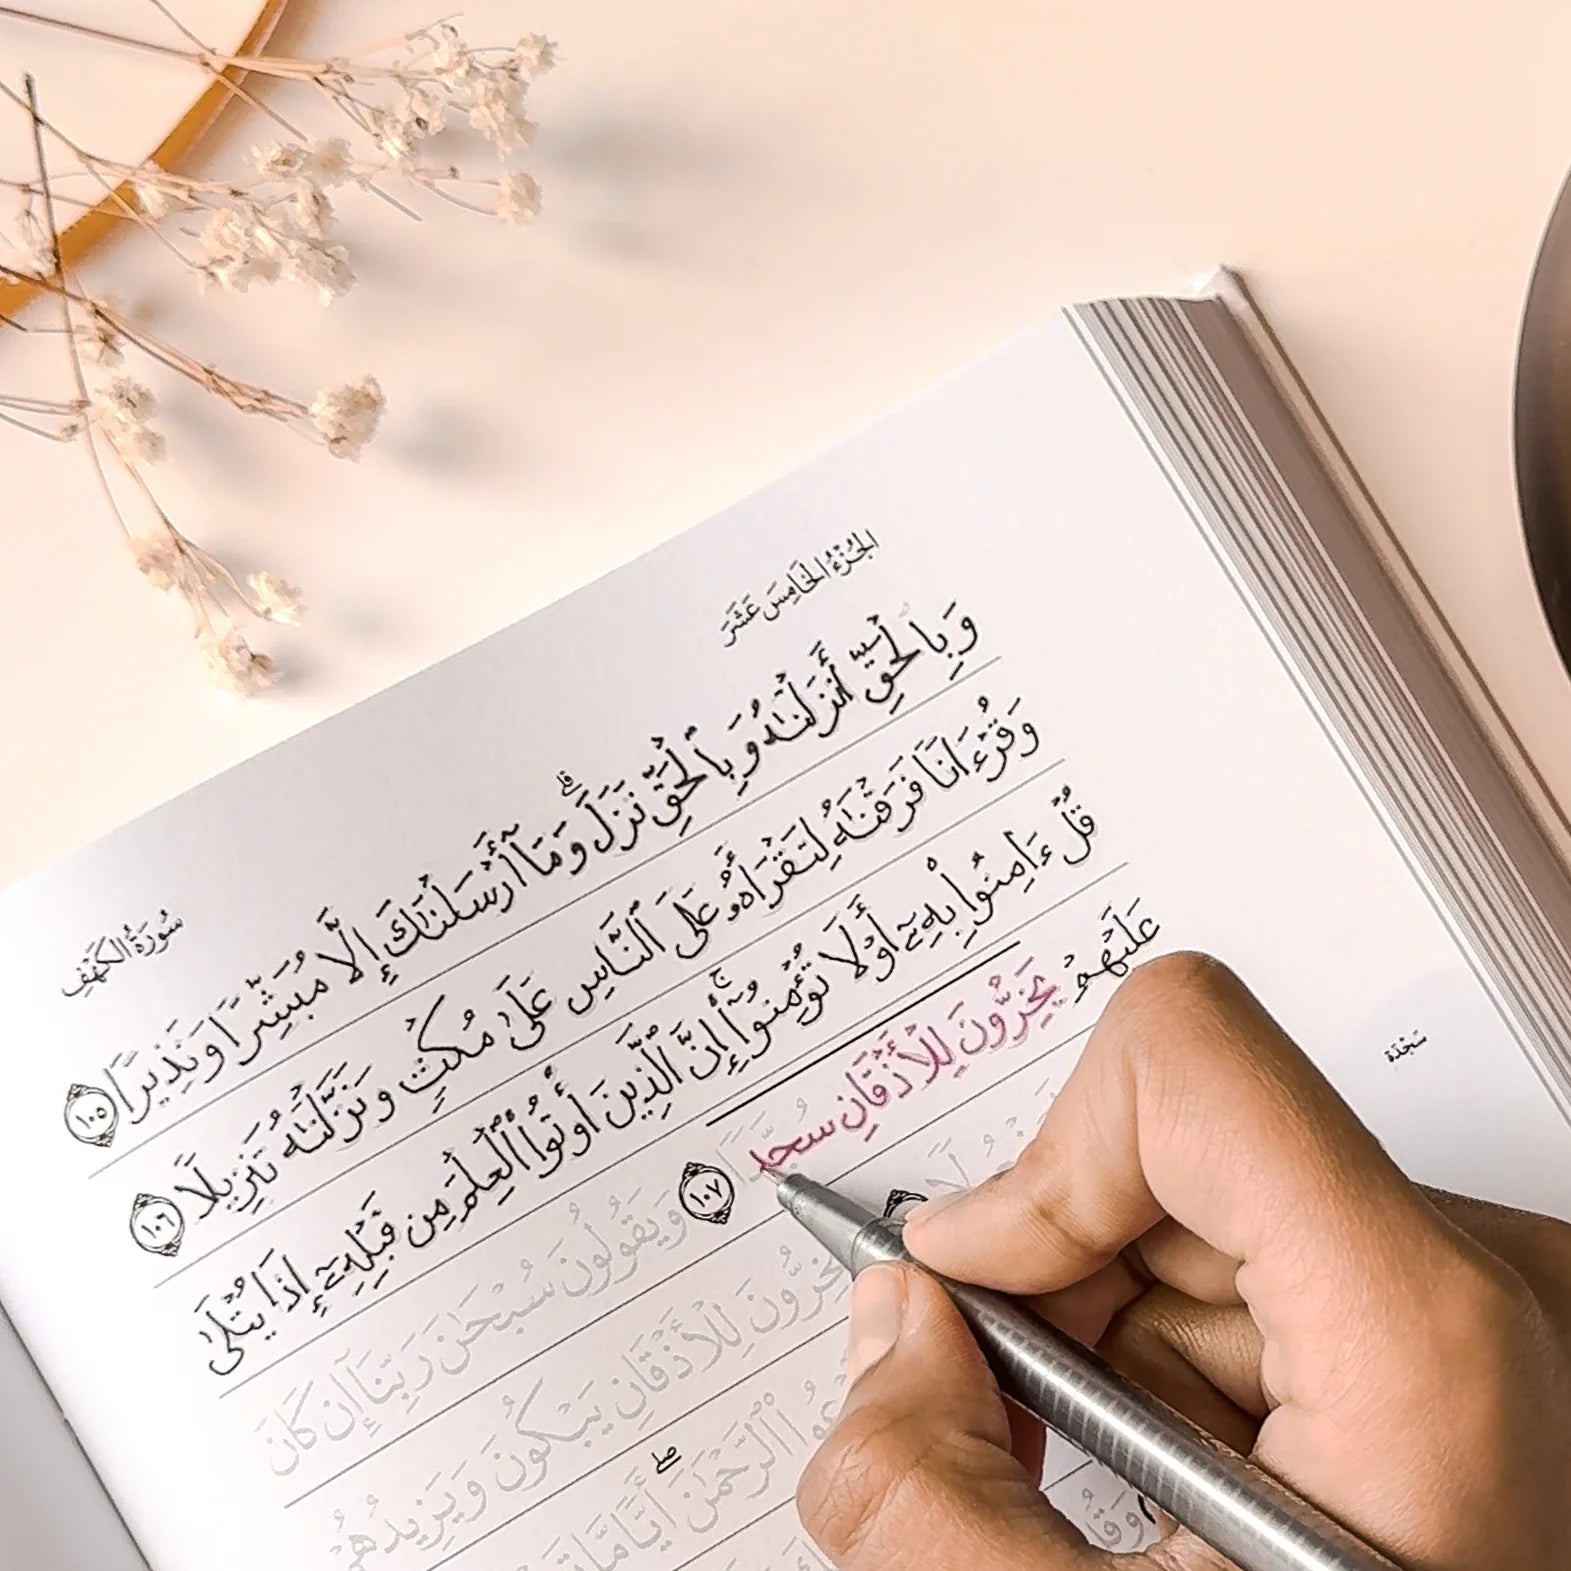 الجُزْءُ الخَامِسَ عَشَرَ
سُورَةُ الكَهْفِ
وَبِٱلْحَقِّ أَنزَلْنَـٰهُ وَبِٱلْحَقِّ نَزَلَ ۗ وَمَآ أَرْسَلْنَـٰكَ إِلَّا مُبَشِّرًا وَنَذِيرًا ١٠٥
وَقُرْءَانًا فَرَقْنَـٰهُ لِتَقْرَأَهُۥ عَلَى ٱلنَّاسِ عَلَىٰ مُكْثٍ وَنَزَّلْنَـٰهُ تَنزِيلًا ١٠٦
قُلْ ءَامِنُوا۟ بِهِۦٓ أَوْ لَا تُؤْمِنُوٓا۟ ۚ إِنَّ ٱلَّذِينَ أُوتُوا۟ ٱلْعِلْمَ مِن قَبْلِهِۦٓ إِذَا يُتْلَىٰ
عَلَيْهِمْ يَخِرُّونَ لِلْأَذْقَانِ سُجَّدًا ١٠٧ وَيَقُولُونَ سُبْحَـٰنَ رَبِّنَآ إِن كَانَ
سَجْدَة
يَخِرُّونَ لِلْأَذْقَانِ يَبْكُونَ وَيَزِيدُهُمْ
ٱلرَّحْمَـٰنَ ۖ أَيًّا مَّا